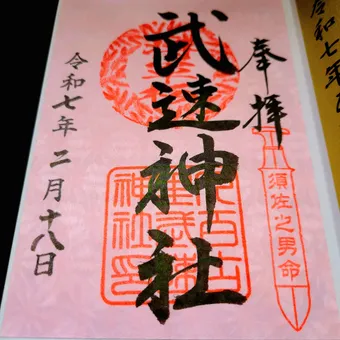 奉拝
武速神社
須佐之男命
令和七年二月十八日
令和七年